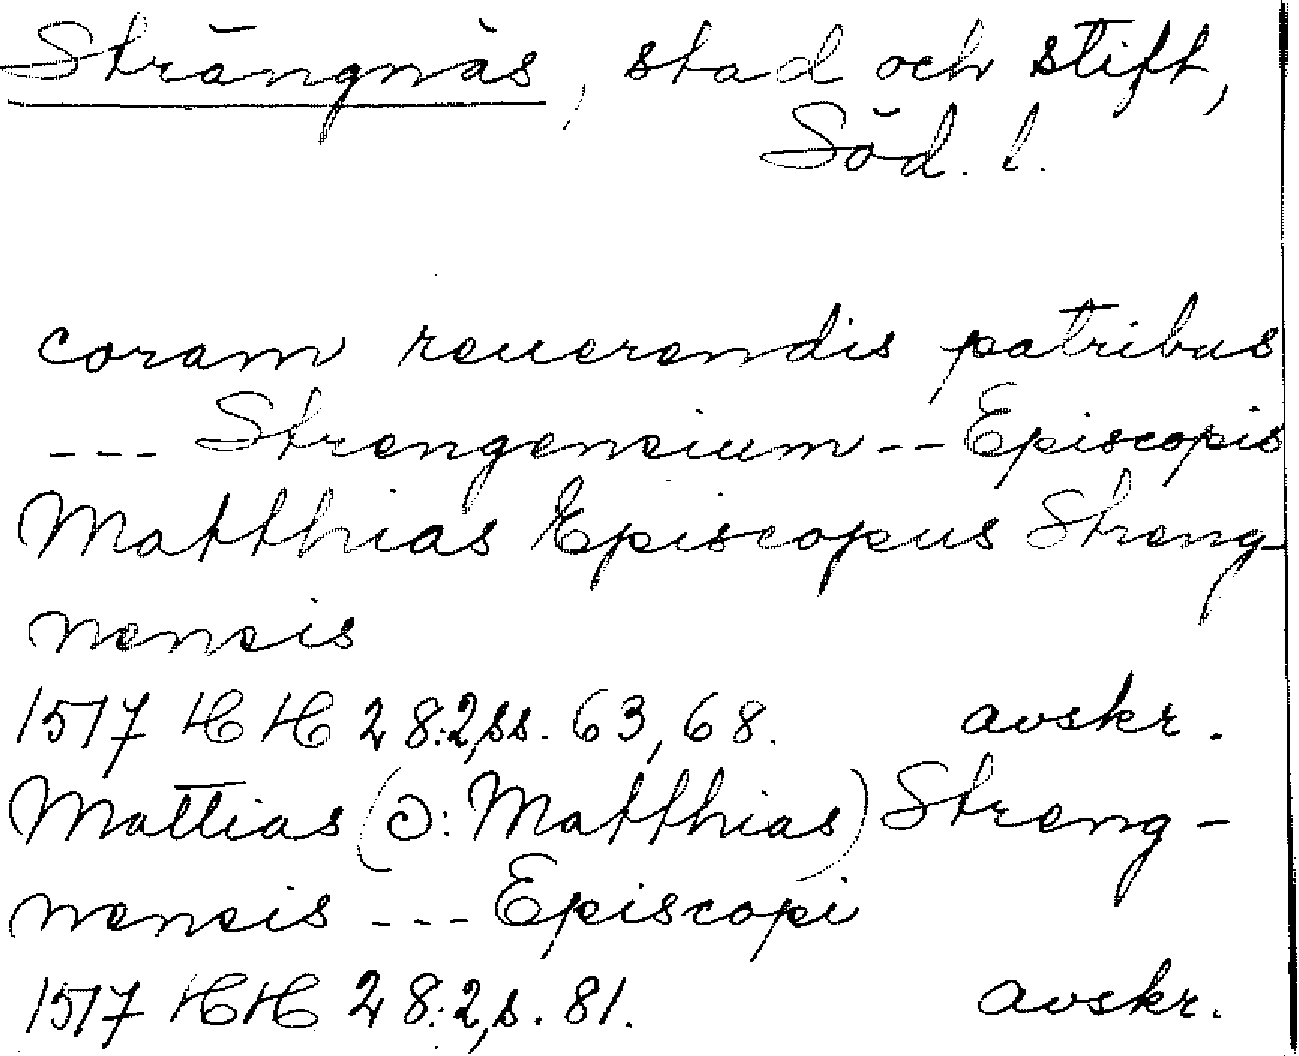 Strängnäs, stad och stift,
Söd. l.
coram reuerendis patribus
--- Strengensium -- Episcopis
Matthias Episcopus Streng-
nensis
1517 HH 28:2, ss. 63, 68. avskr.
Mattias (ɔ: Matthias) Streng-
nensis --- Episcopi
1517 HH 28:2, s. 81. avskr.